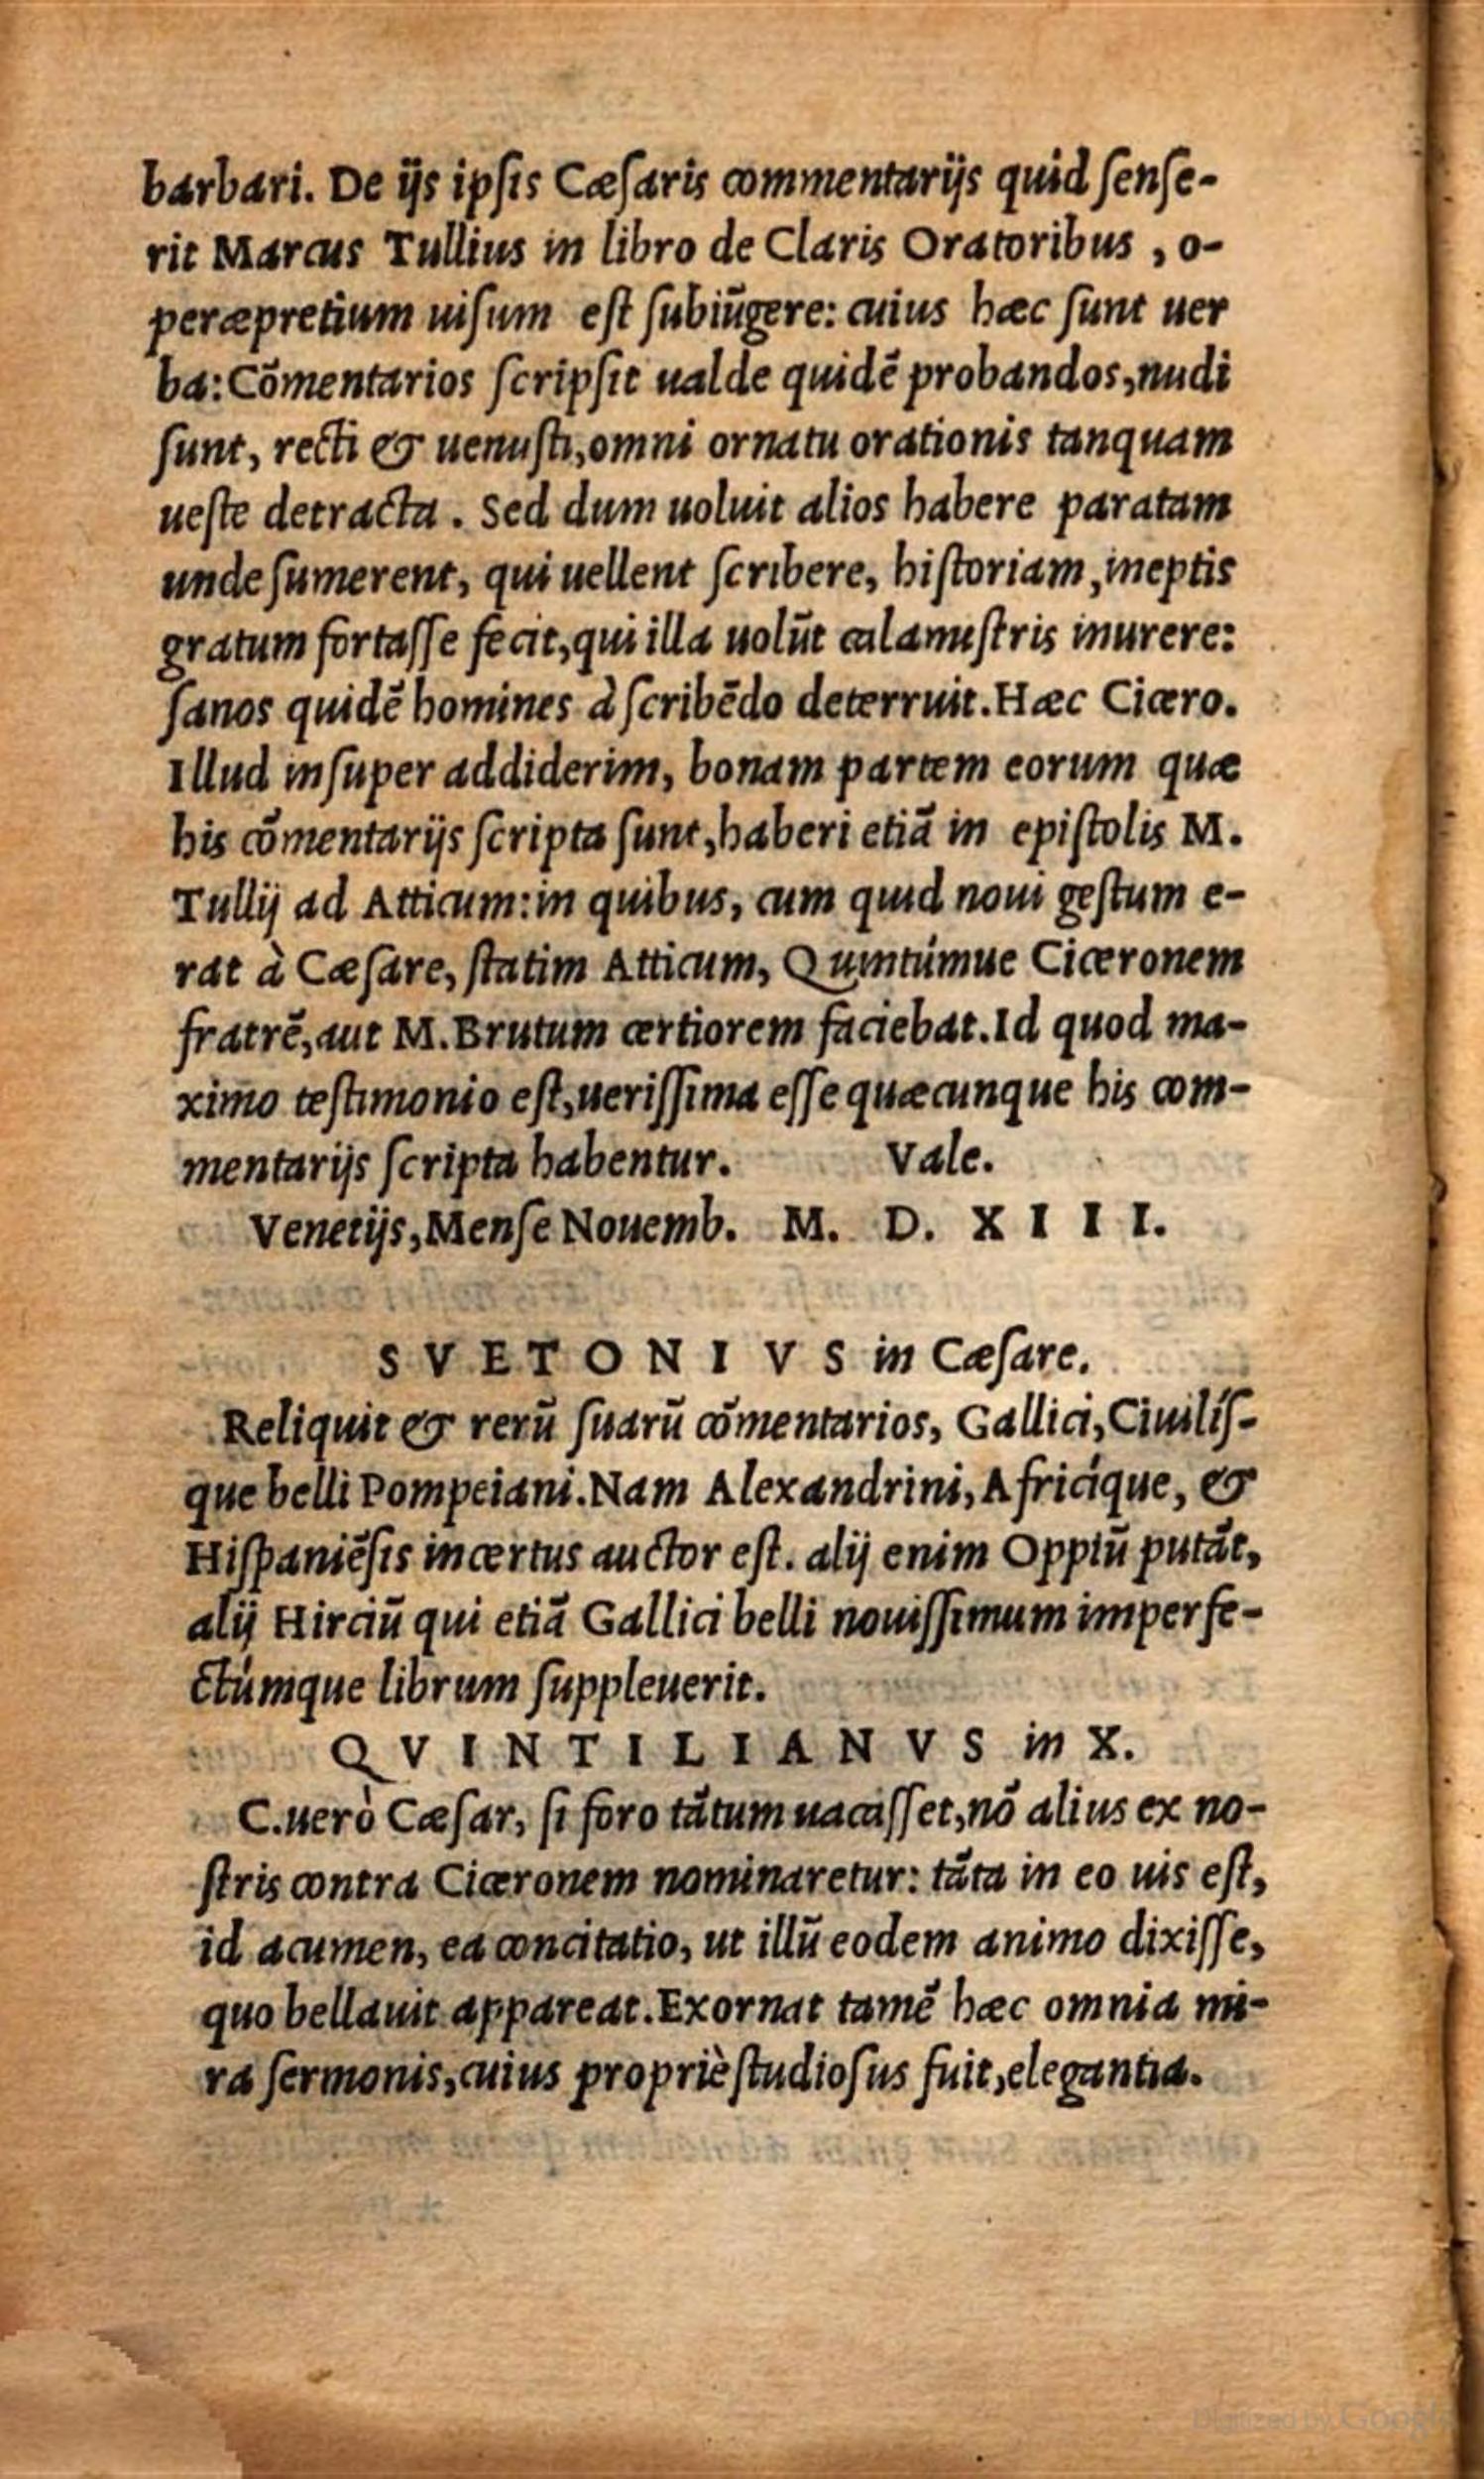 barbari. De ijs ipſis Cæſaris commentarijs quid ſenſe-
rit Marcus Tullius in libro de Claris Oratoribus , o-
peræpretium uiſum est ſubiūgere: cuius hæc ſunt uer
ba: Cōmentarios ſcripſit ualde quidē probandos, nudi
ſunt, recti & uenuſti, omni ornatu orationis tanquam
ueſte detracta . Sed dum uoluit alios habere paratam
unde ſumerent, qui uellent ſcribere, hiſtoriam, ineptis
gratum fortaſſe fecit, qui illa uolūt calamiſtris inurere:
ſanos quidē homines à ſcribēdo deterruit. Hæc Cicero.
Illud inſuper addiderim, bonam partem eorum quæ
his cōmentarijs ſcripta ſunt, haberi etiā in epiſtolis M.
Tullij ad Atticum: in quibus, cum quid noui geſtum e-
rat à Cæſare, ſtatim Atticum, Quintúmue Ciceronem
fratrē, aut M. Brutum certiorem faciebat. Id quod ma-
ximo teſtimonio eſt, ueriſſima eſſe quæcunque his com-
mentarijs ſcripta habentur. Vale.
Venetijs, Menſe Nouemb. M. D. X I I I.
S V E T O N I V S in Cæſare.
Reliquit & rerū ſuarū cōmentarios, Gallici, Ciuilíſ-
que belli Pompeiani. Nam Alexandrini, Africíque, &
Hiſpaniēſis incertus auctor eſt. alij enim Oppiū putāt,
alij Hirciū qui etiā Gallici belli nouiſſimum imperfe-
ctúmque librum ſuppleuerit.
Q V I N T I L I A N V S in X.
C. uerò Cæſar, ſi foro tātum uacaſſet, nō alius ex no-
ſtris contra Ciceronem nominaretur: tāta in eo uis eſt,
id acumen, ea concitatio, ut illū eodem animo dixiſſe,
quo bellauit appareat. Exornat tamē hæc omnia mi-
ra ſermonis, cuius propriè ſtudioſus fuit, elegantia.
Digitized by Google